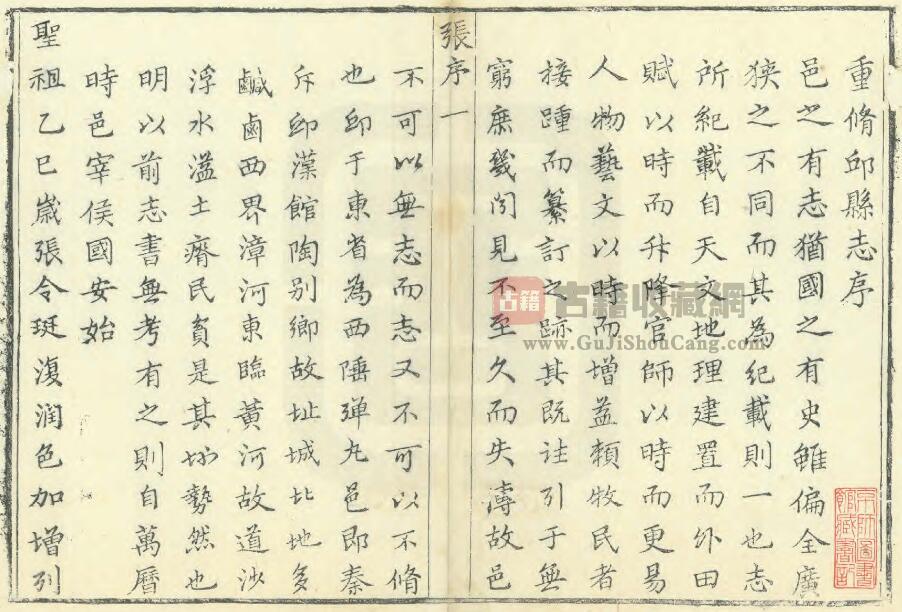 重脩邱縣志序
邑之有志猶國之有史雖偏全廣
狹之不同而其為紀載則一也志
所紀載自天文地理建置而外田
賦以時而升降官師以時而更易
人物藝文以時而增益頼牧民者
接踵而纂訂之跡其既往引于無
窮庶幾聞見不至久而失濤故邑
張序一
不可以無志而志又不可以不脩
也邱于東省為西陲彈丸邑即秦
斥邱漢館陶别鄉故址城北地多
鹹鹵西界漳河東臨黃河故道沙
浮水溢土瘠民貧是其坳勢然也
明以前志書無考有之則自萬曆
時邑宰侯國安始
聖祖乙巳歲張令珽復润色加增列
古籍
古籍收藏網
www.GuJiShouCang.com